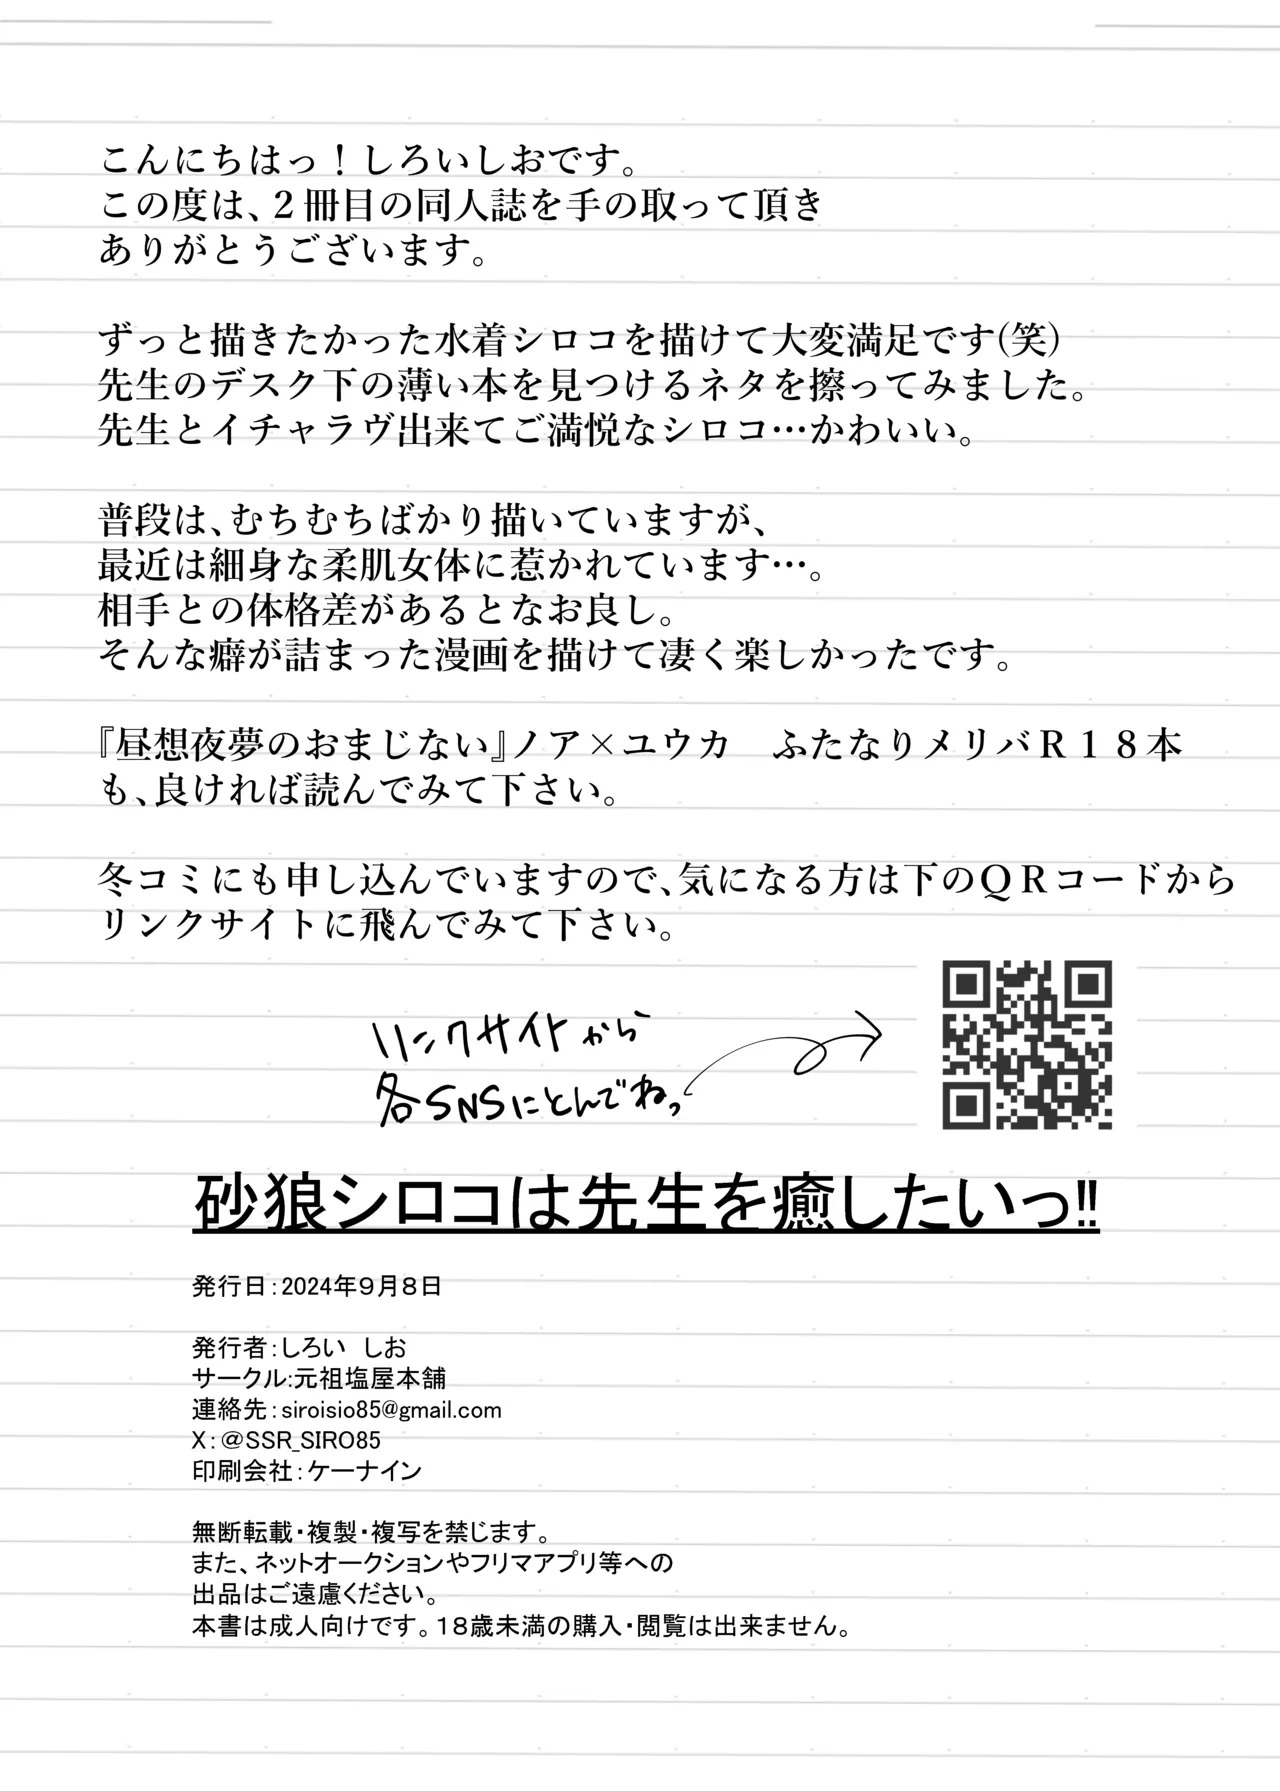 こんにちはっ！しろいしおです。
この度は、２冊目の同人誌を手の取って頂き
ありがとうございます。
ずっと描きたかった水着シロコを描けて大変満足です(笑)
先生のデスク下の薄い本を見つけるネタを擦ってみました。
先生とイチャラヴ出来てご満悦なシロコ…かわいい。
普段は、むちむちばかり描いていますが、
最近は細身な柔肌女体に惹かれています…。
相手との体格差があるとなお良し。
そんな癖が詰まった漫画を描けて凄く楽しかったです。
『昼想夜夢のおまじない』ノア×ユウカ　ふたなりメリバＲ１８本
も、良ければ読んでみて下さい。
冬コミにも申し込んでいますので、気になる方は下のＱＲコードから
リンクサイトに飛んでみて下さい。
リンクサイトから
各SNSにとんでねっ
砂狼シロコは先生を癒したいっ!!
発行日：2024年９月８日
発行者：しろい　しお
サークル:元祖塩屋本舗
連絡先：siroisio85@gmail.com
X：＠SSR_SIRO85
印刷会社：ケーナイン
無断転載・複製・複写を禁じます。
また、ネットオークションやフリマアプリ等への
出品はご遠慮ください。
本書は成人向けです。１８歳未満の購入・閲覧は出来ません。